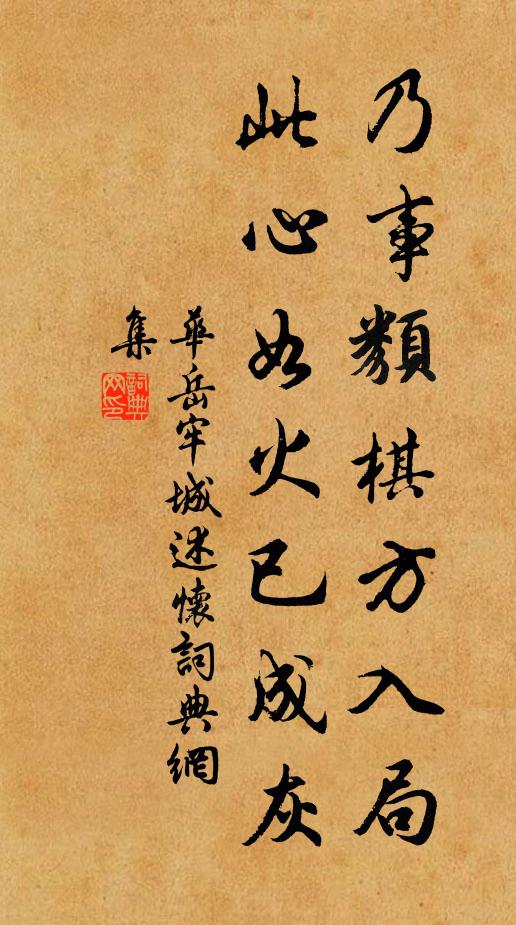 乃事類棋方入局
此心如火已成灰
華岳牢城述懷詞典網
集
詞典
网印